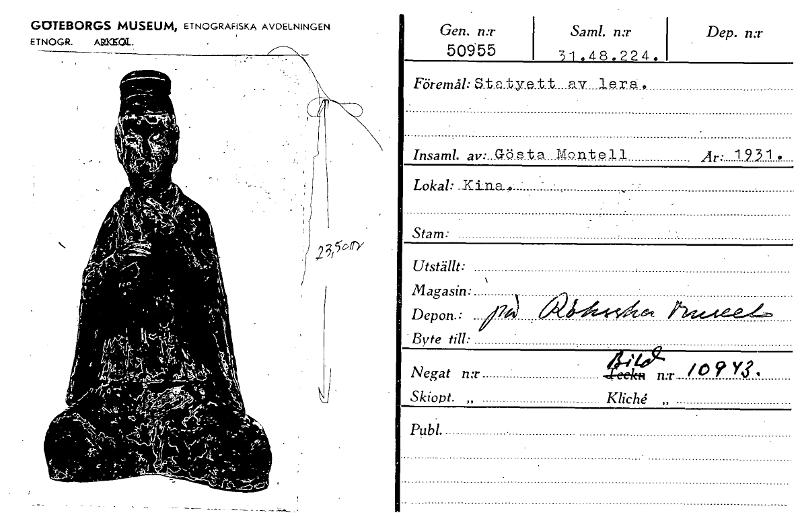 GÖTEBORGS MUSEUM, ETNOGRAFISKA AVDELNINGEN
ETNOGR. ARKEOL.
23,5cm
Gen. n:r Saml. n:r Dep. n:r
50955 31.48.224.
Föremål: Statyett av lera.
Insaml. av: Gösta Montell År: 1931.
Lokal: Kina.
Stam:
Utställt:
Magasin:
Depon.: på Röhsska Museet
Byte till:
Bild
Negat n:r Teckn n:r 10943.
Skiopt. „ Kliché „
Publ.